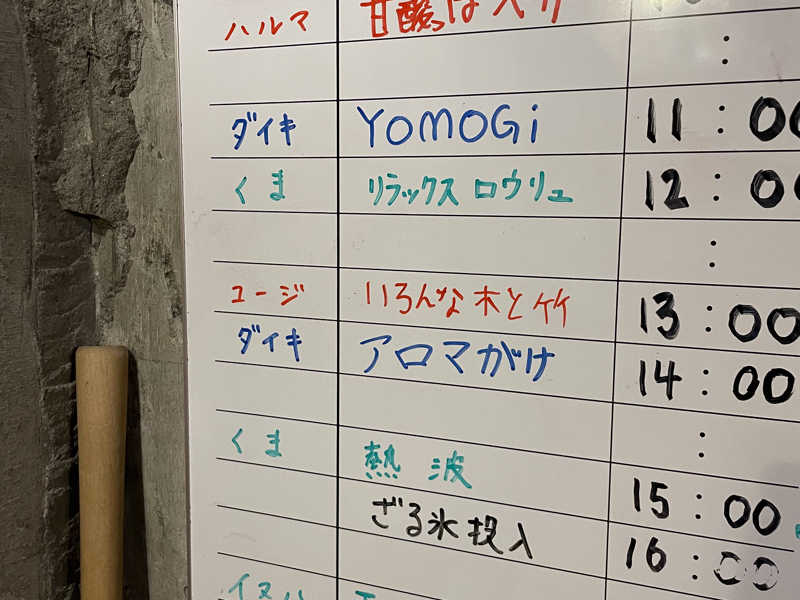 ハルマ 甘酸っぱ
:
ダイキ YOMOGi 11:00
くま リラックス ロウリュ 12:00
:
ユージ いろんな木と竹 13:00
ダイキ アロマがけ 14:00
:
くま 熱波 15:00
ざる氷投入 16:00
イヌハ